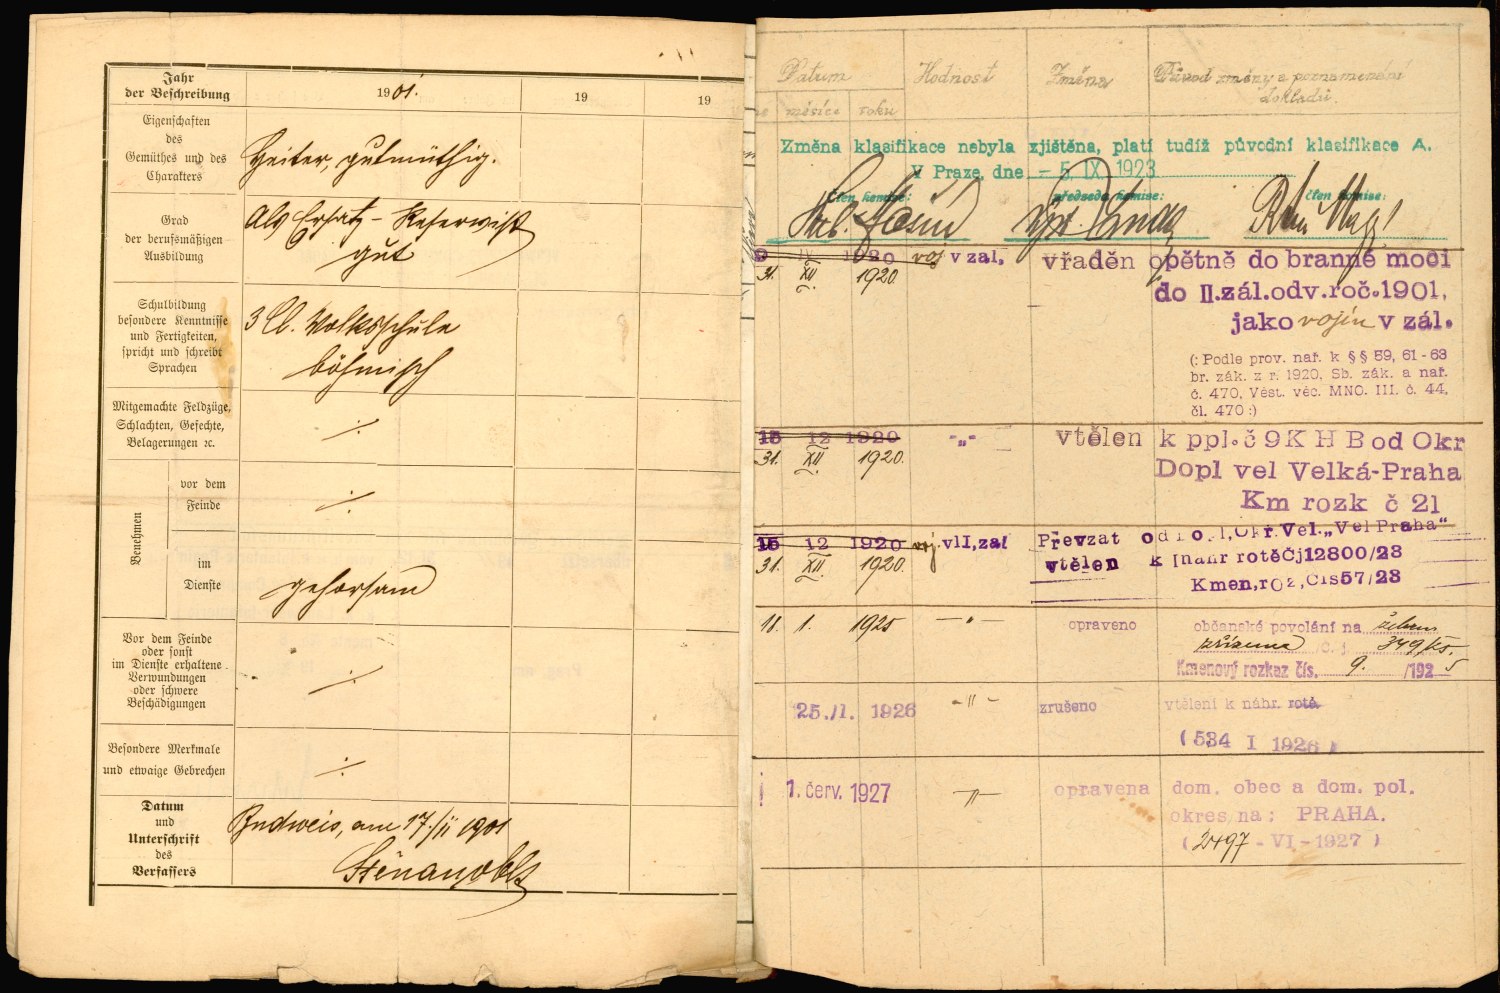 Jahr
der Beschreibung
1901.
19
19
Eigenschaften
des
Gemüthes und des
Charakters
Heiter, gutmüthig.
Grad
der berufsmäßigen
Ausbildung
Als Ersatz-Reservist
gut
Schulbildung
besondere Kenntnisse
und Fertigkeiten,
spricht und schreibt
Sprachen
3 Cl. Volksschule
böhmisch
Mitgemachte Feldzüge,
Schlachten, Gefechte,
Belagerungen ꝛc.
·/·
Benehmen
vor dem
Feinde
·/·
im
Dienste
gehorsam
Vor dem Feinde
oder sonst
im Dienste erhaltene
Verwundungen
oder schwere
Beschädigungen
·/·
Besondere Merkmale
und etwaige Gebrechen
·/·
Datum
und
Unterschrift
des
Verfassers
Budweis, am 17./II 1901
Datum
Hodnost
Změna
Původ změny a poznamenání
dokladů.
měsíce
roku
Změna klasifikace nebyla zjištěna, platí tudíž původní klasifikace A.
V Praze, dne - 5. IX. 1923
člen komise:
předseda komise:
člen komise:
1920 voj v zál. vřaděn opětně do branné moci
31. XII. 1920.
do II.zál.odv.roč.1901,
jako vojín v zál.
(: Podle prov. nař. k §§ 59, 61-63
br. zák. z r. 1920, Sb. zák. a nař.
č. 470, Věst. věc. MNO. III. č. 44,
čl. 470 :)
15 12 1920 -„- vtělen k ppl. č 9 K H B od Okr
31. XII. 1920.
Dopl vel Velká-Praha
Km rozk č 21
15 12 1920 voj. v II, zál Převzat od Dopl, Okr. Vel. „Vel Praha"
31. XII. 1920.
vtělen k náhr rotě Čj 12800/23
Kmen, roz, Čís 57/23
18. 1. 1925 -„- opraveno občanské povolání na
zřízence č. j. 349/25.
Kmenový rozkaz čís. 9. /1925
25./I. 1926 -„- zrušeno vtělení k náhr. rotě
(534 I 1926)
1. červ. 1927 -„- opravena dom. obec a dom. pol.
okres na: PRAHA.
(2497 - VI - 1927)